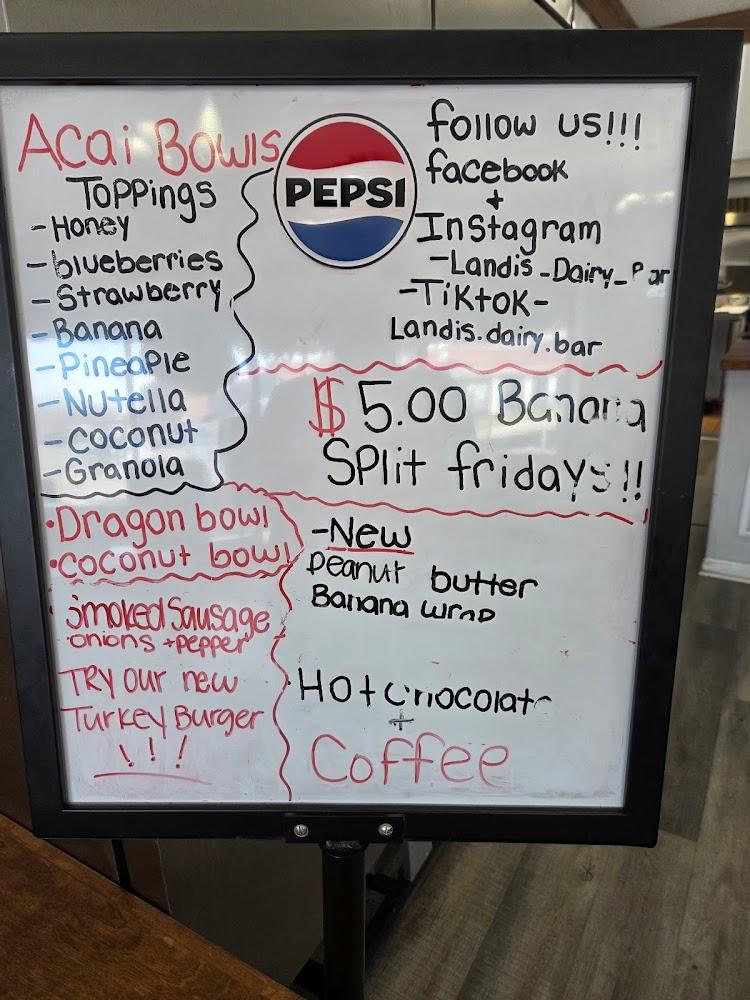 Acai Bowls
Toppings
- Honey
- blueberries
- Strawberry
- Banana
- Pineaple
- Nutella
- coconut
- Granola
PEPSI
follow us!!!
facebook
+
Instagram
- Landis_Dairy_Bar
- Tiktok -
Landis.dairy.bar
$5.00 Banana
Split fridays!!
• Dragon bowl
• coconut bowl
Smoked Sausage
onions + pepper
TRY our new
Turkey Burger
!!!
- New
peanut butter
Banana wrap
Hot chocolate
+
Coffee